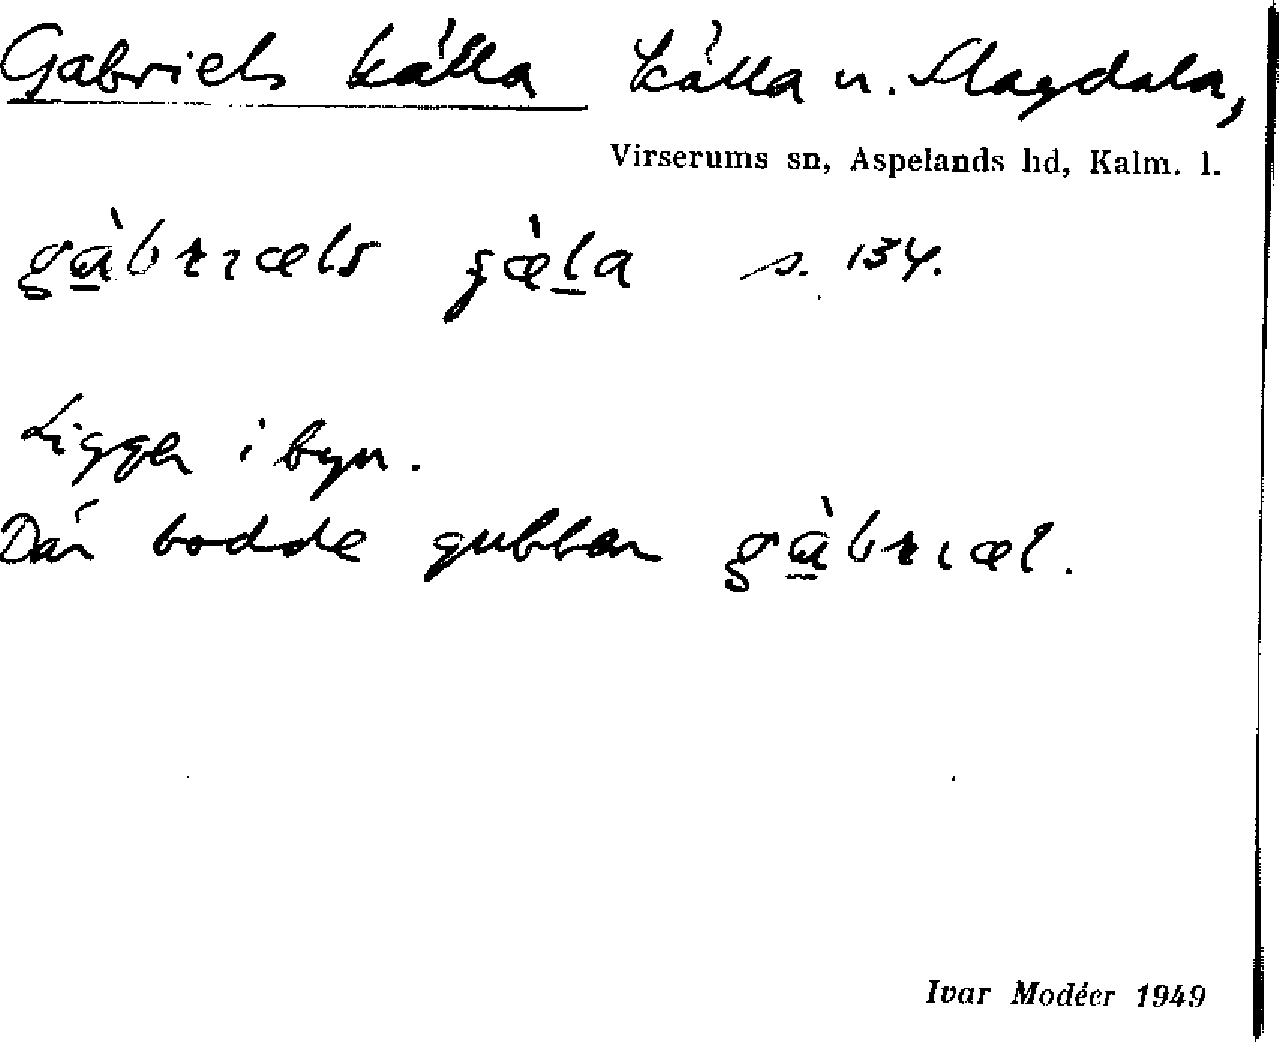 Gabriels källa källa u. Slagdala,
Virserums sn, Aspelands hd, Kalm. l.
gàbrıæls ʝæ̀la s. 134.
Ligger i byn.
Där bodde gubben gàbrıæl.
Ivar Modéer 1949